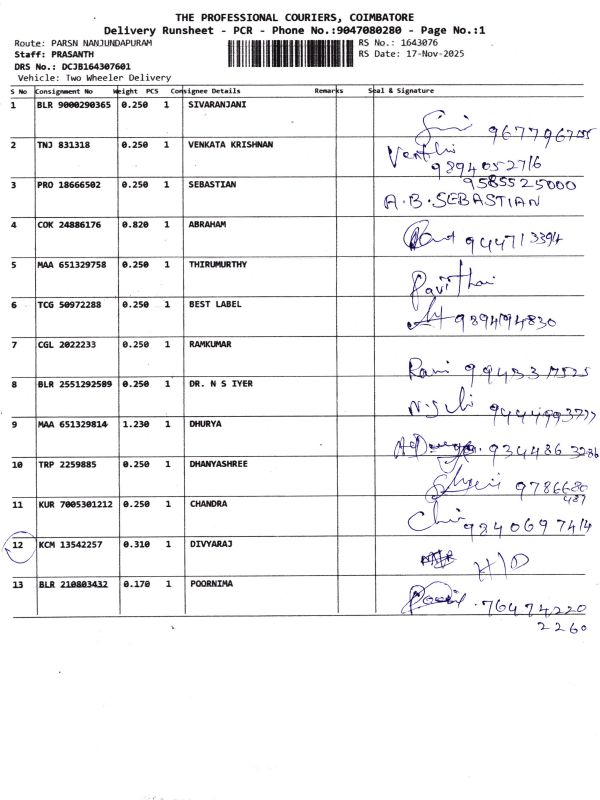 THE PROFESSIONAL COURIERS, COIMBATORE
Delivery Runsheet - PCR - Phone No.:9047080280 - Page No.:1
Route: PARSN NANJUNDAPURAM
Staff: PRASANTH
DRS No.: DCJB164307601
Vehicle: Two Wheeler Delivery
RS No.: 1643076
RS Date: 17-Nov-2025
S No Consignment No Weight PCS Consignee Details Remarks Seal & Signature
1 BLR 9000290365 0.250 1 SIVARANJANI
2 TNJ 831318 0.250 1 VENKATA KRISHNAN 9894052716
3 PRO 18666502 0.250 1 SEBASTIAN 9585525000
A.B.SEBASTIAN
4 COK 24886176 0.820 1 ABRAHAM 944713394
5 MAA 651329758 0.250 1 THIRUMURTHY
6 TCG 50972288 0.250 1 BEST LABEL
7 CGL 2022233 0.250 1 RAMKUMAR
8 BLR 2551292589 0.250 1 DR. N S IYER
9 MAA 651329814 1.230 1 DHURYA 934486 3286
10 TRP 2259885 0.250 1 DHANYASHREE
11 KUR 7005301212 0.250 1 CHANDRA 9840697414
12 KCM 13542257 0.310 1 DIVYARAJ H/D
13 BLR 210803432 0.170 1 POORNIMA 76474220
2260